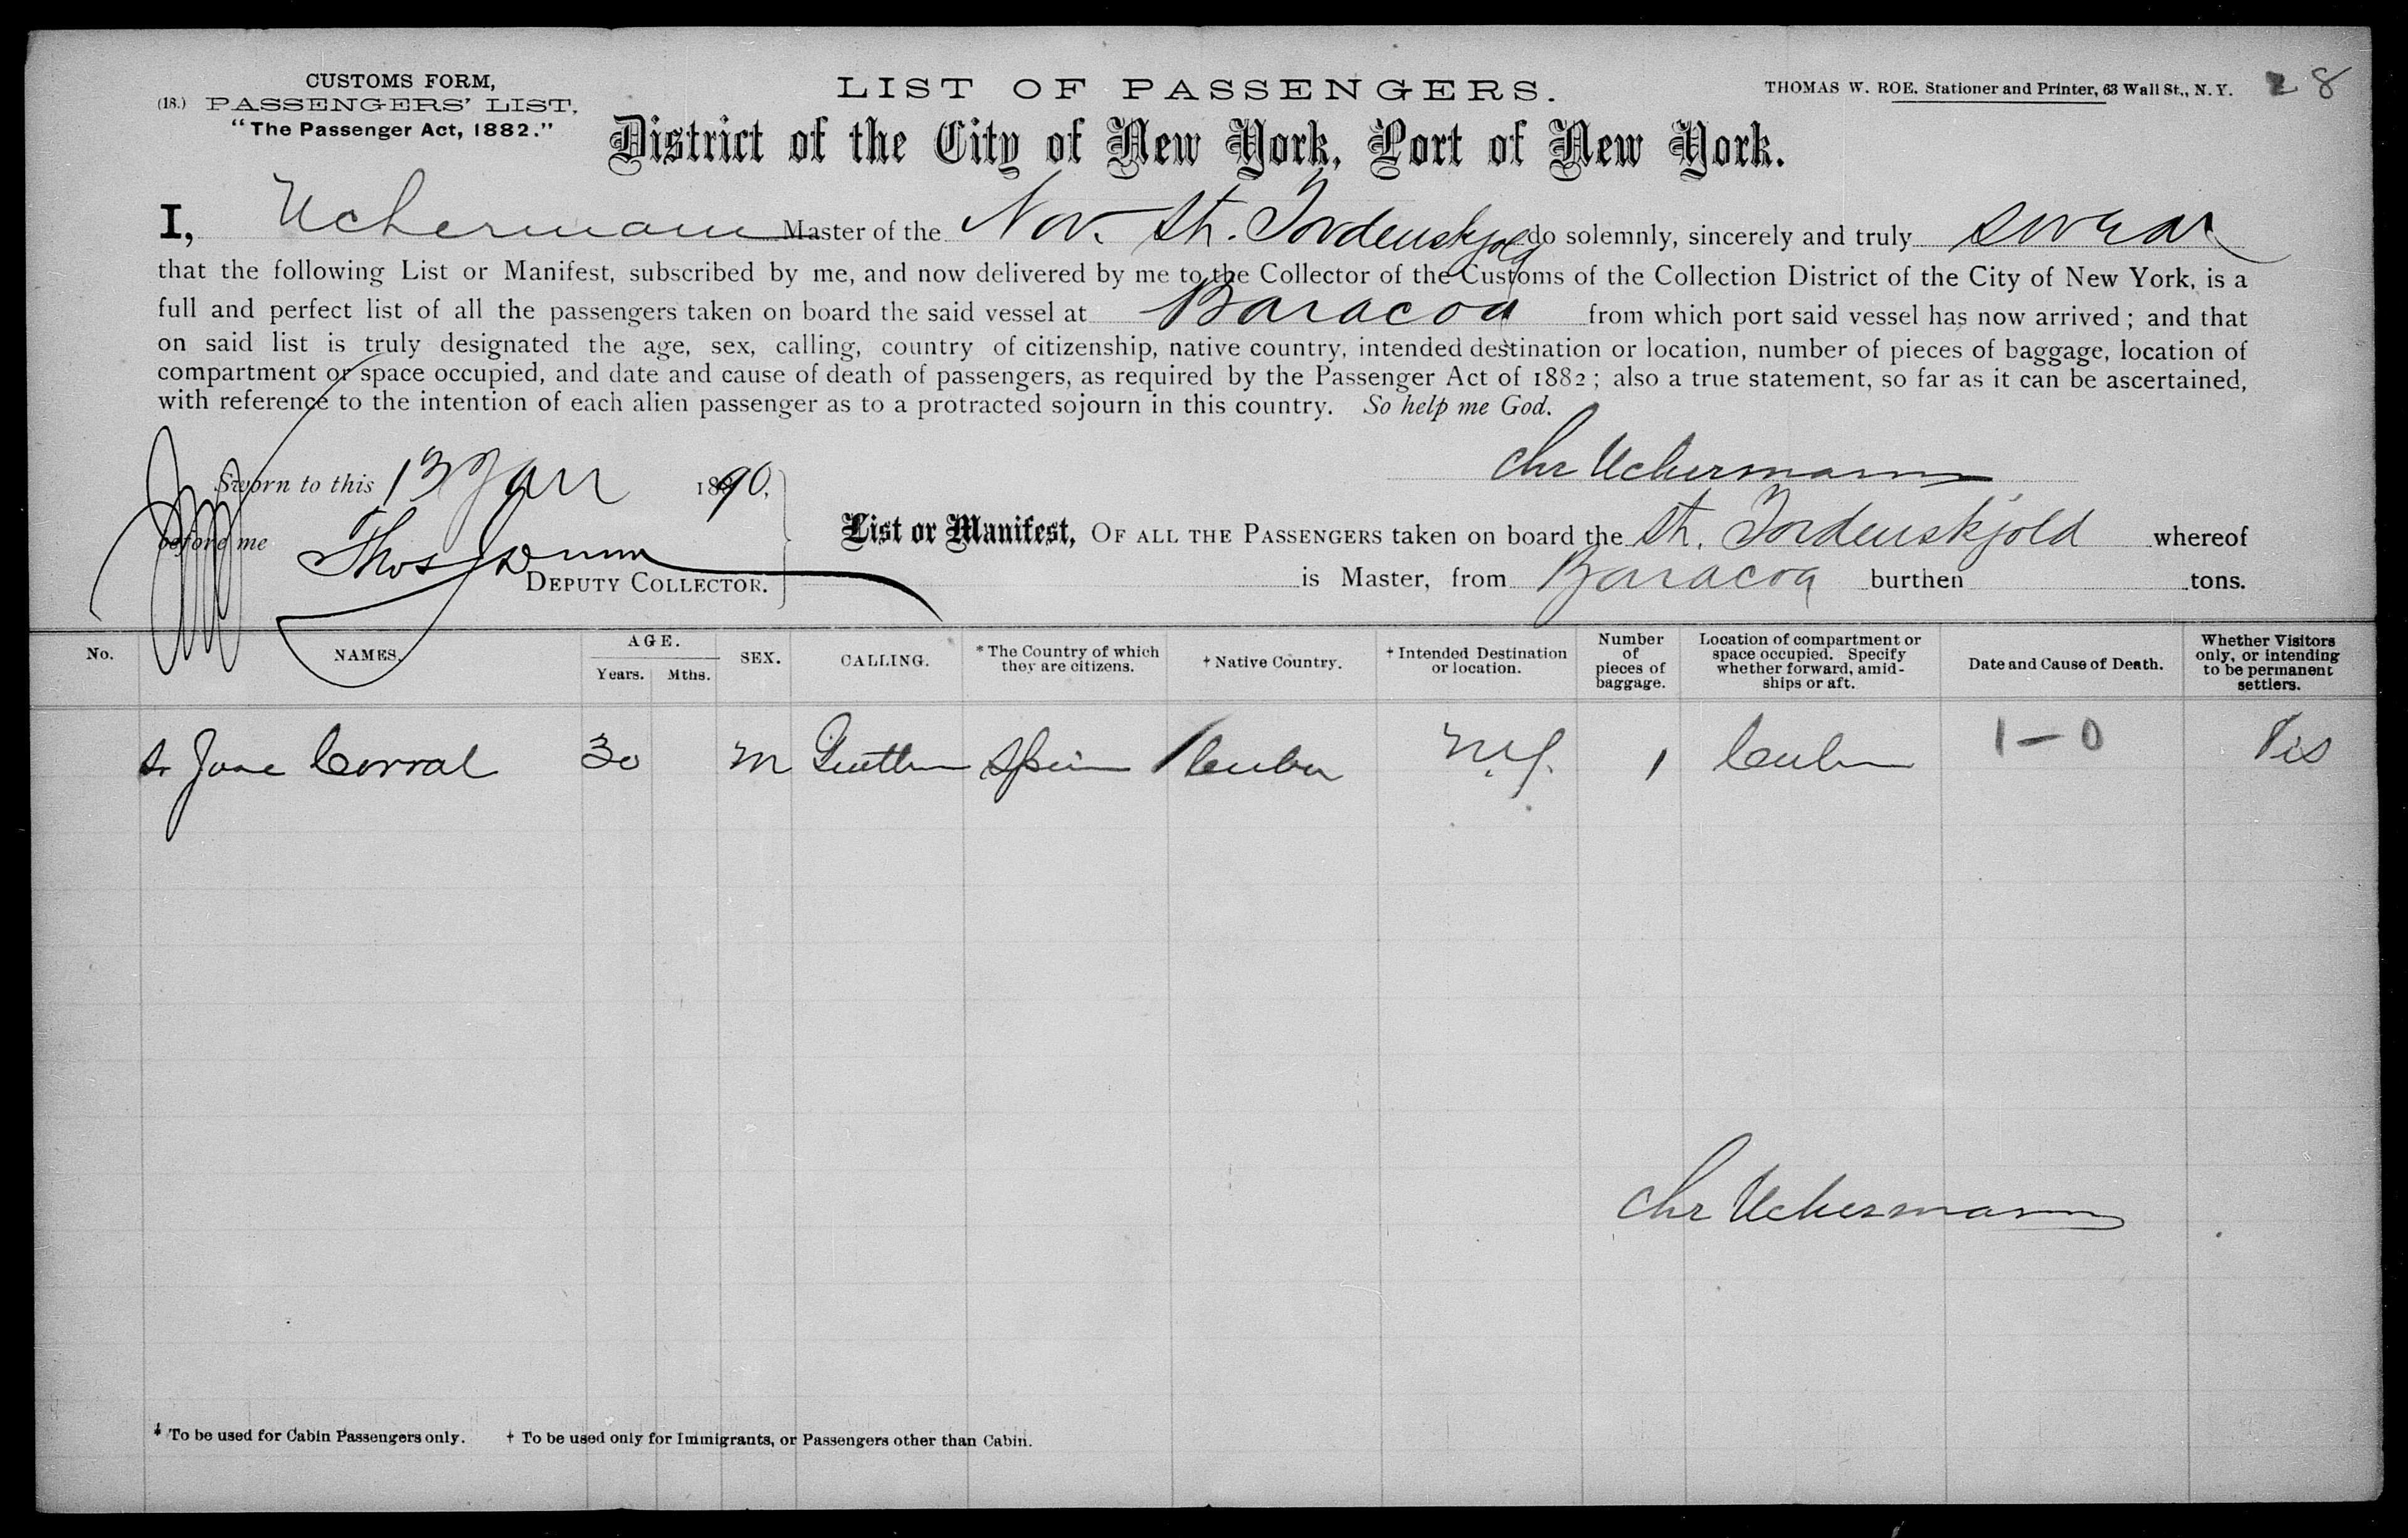 CUSTOMS FORM,
(18.) PASSENGERS' LIST.
"The Passenger Act, 1882."
LIST OF PASSENGERS.
THOMAS W. ROE, Stationer and Printer, 63 Wall St., N. Y.
28
District of the City of New York, Port of New York.
I, Uchermann Master of the Nor. St. Tordenskjold do solemnly, sincerely and truly swear
that the following List or Manifest, subscribed by me, and now delivered by me to the Collector of the Customs of the Collection District of the City of New York, is a
full and perfect list of all the passengers taken on board the said vessel at Baracoa from which port said vessel has now arrived; and that
on said list is truly designated the age, sex, calling, country of citizenship, native country, intended destination or location, number of pieces of baggage, location of
compartment or space occupied, and date and cause of death of passengers, as required by the Passenger Act of 1882; also a true statement, so far as it can be ascertained,
with reference to the intention of each alien passenger as to a protracted sojourn in this country. So help me God.
Chr Uchermann
Sworn to this 13 Jan 1890,
before me Thos Dunn
DEPUTY COLLECTOR.
List or Manifest, OF ALL THE PASSENGERS taken on board the St. Tordenskjold whereof
is Master, from Baracoa burthen tons.
No. NAMES. AGE. Years. Mths. SEX. CALLING. * The Country of which they are citizens. † Native Country. † Intended Destination or location. Number of pieces of baggage. Location of compartment or space occupied. Specify whether forward, amidships or aft. Date and Cause of Death. Whether Visitors only, or intending to be permanent settlers.
Sr Jose Corral 30 M Gentlm Spain Cuba N.Y. 1 Cabin 1-0 Vis
Chr Uchermann
* To be used for Cabin Passengers only. † To be used only for Immigrants, or Passengers other than Cabin.